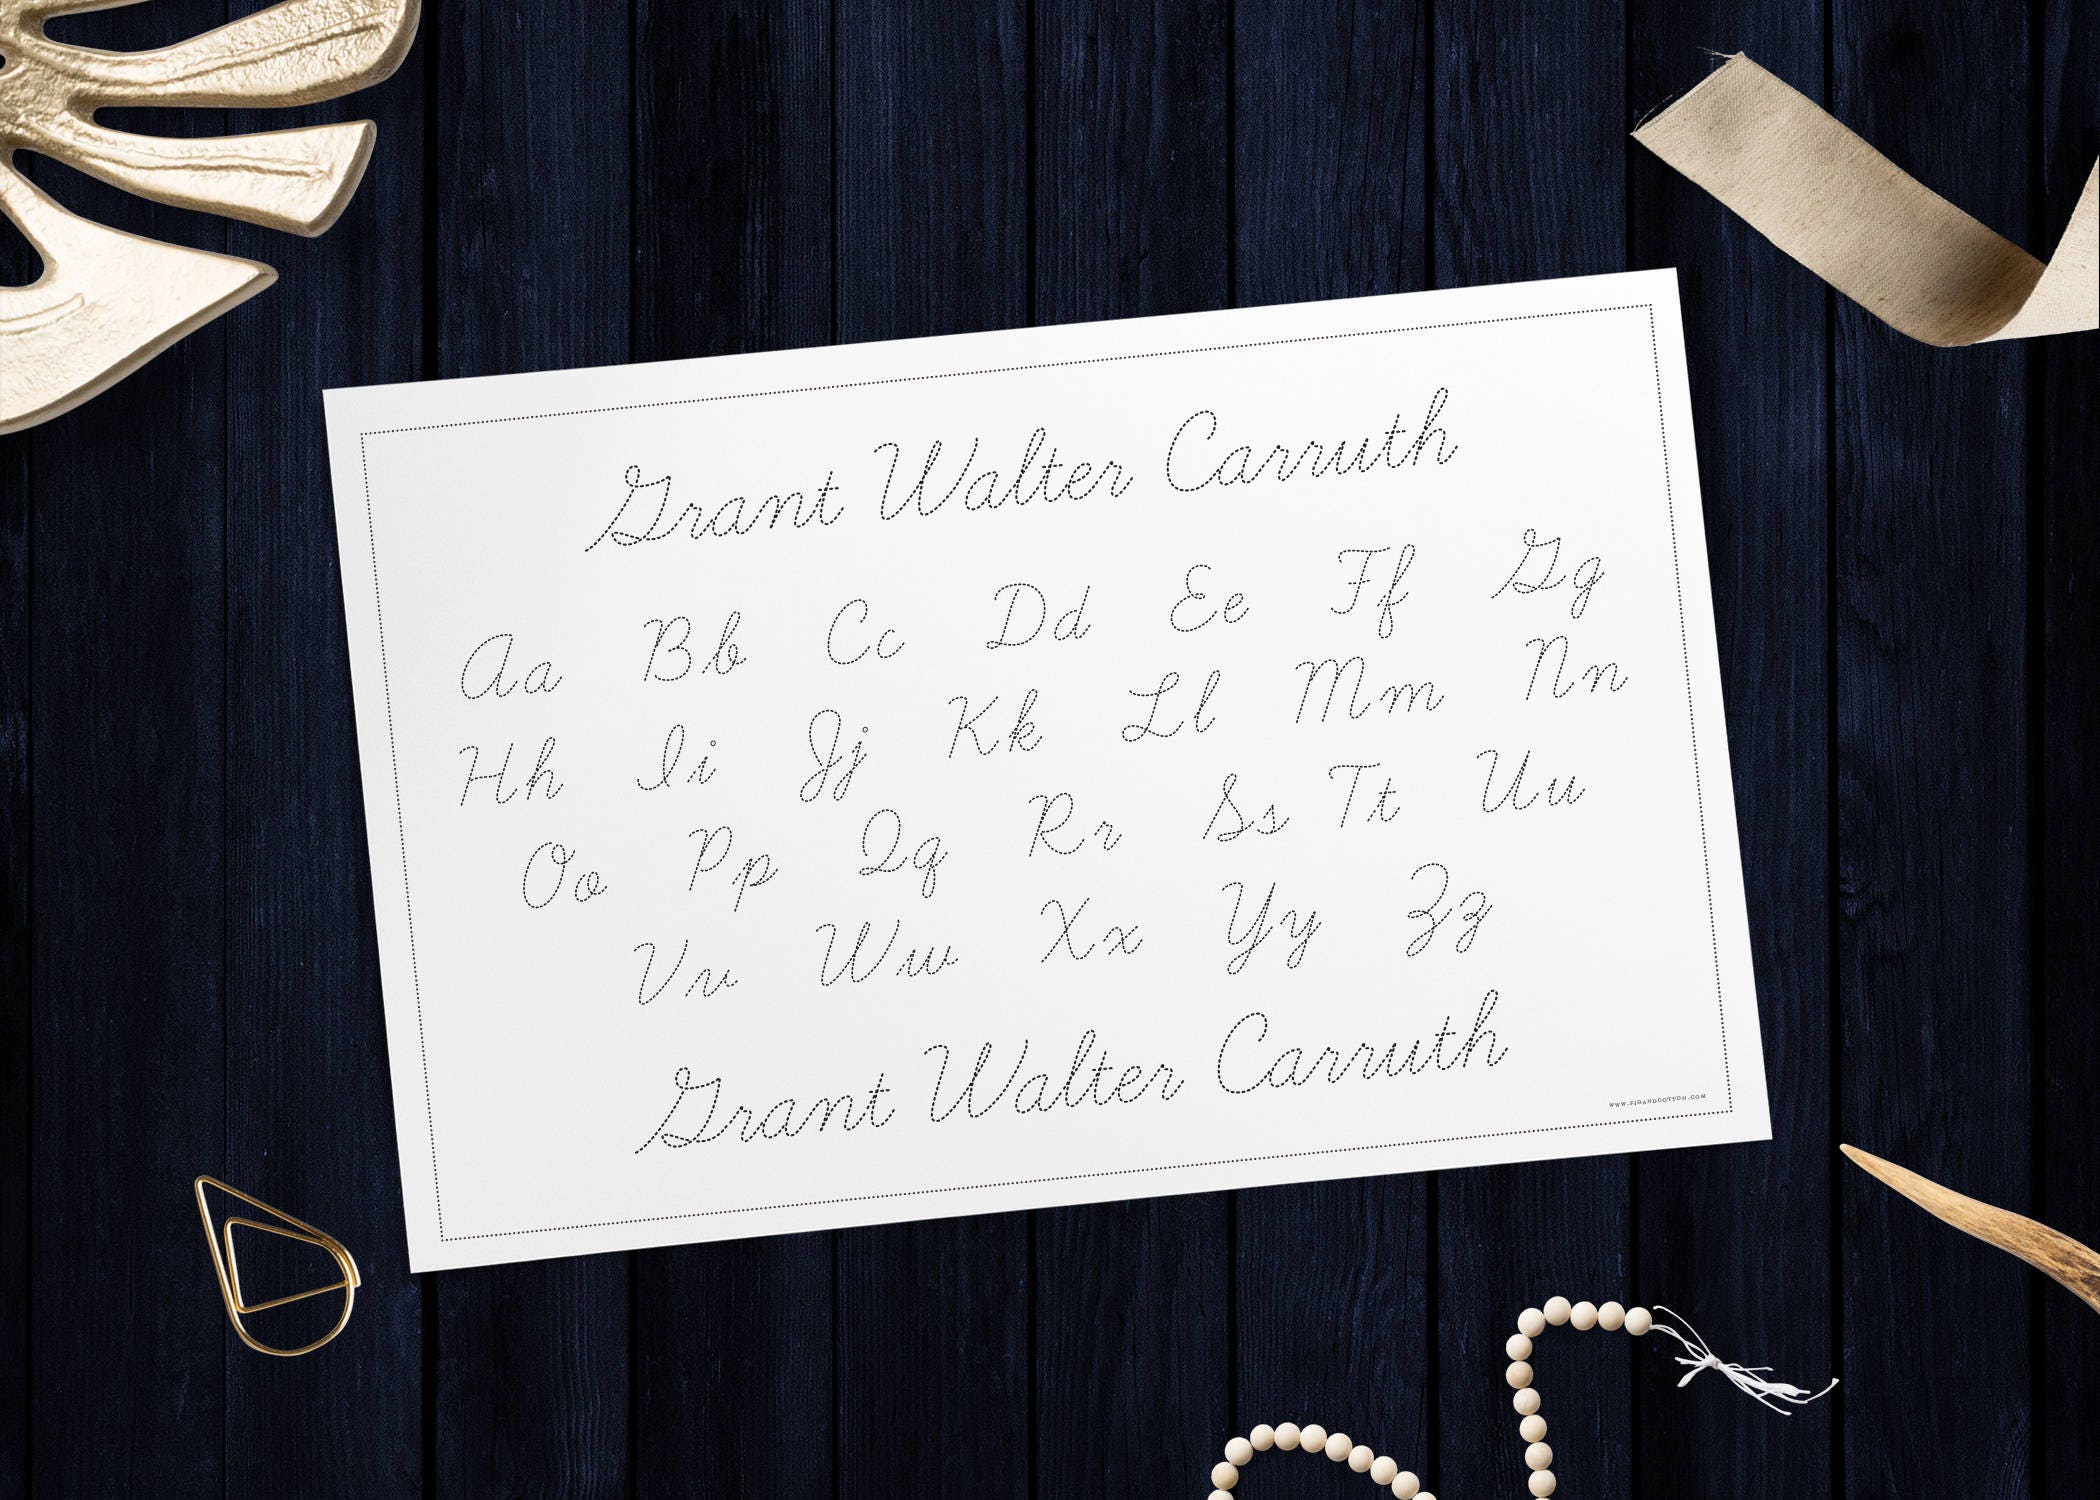 Grant Walter Carruth
Aa Bb Cc Dd Ee Ff Gg
Hh Ii Jj Kk Ll Mm Nn
Oo Pp Qq Rr Ss Tt Uu
Vv Ww Xx Yy Zz
Grant Walter Carruth
WWW.FIGANDCOTTON.COM